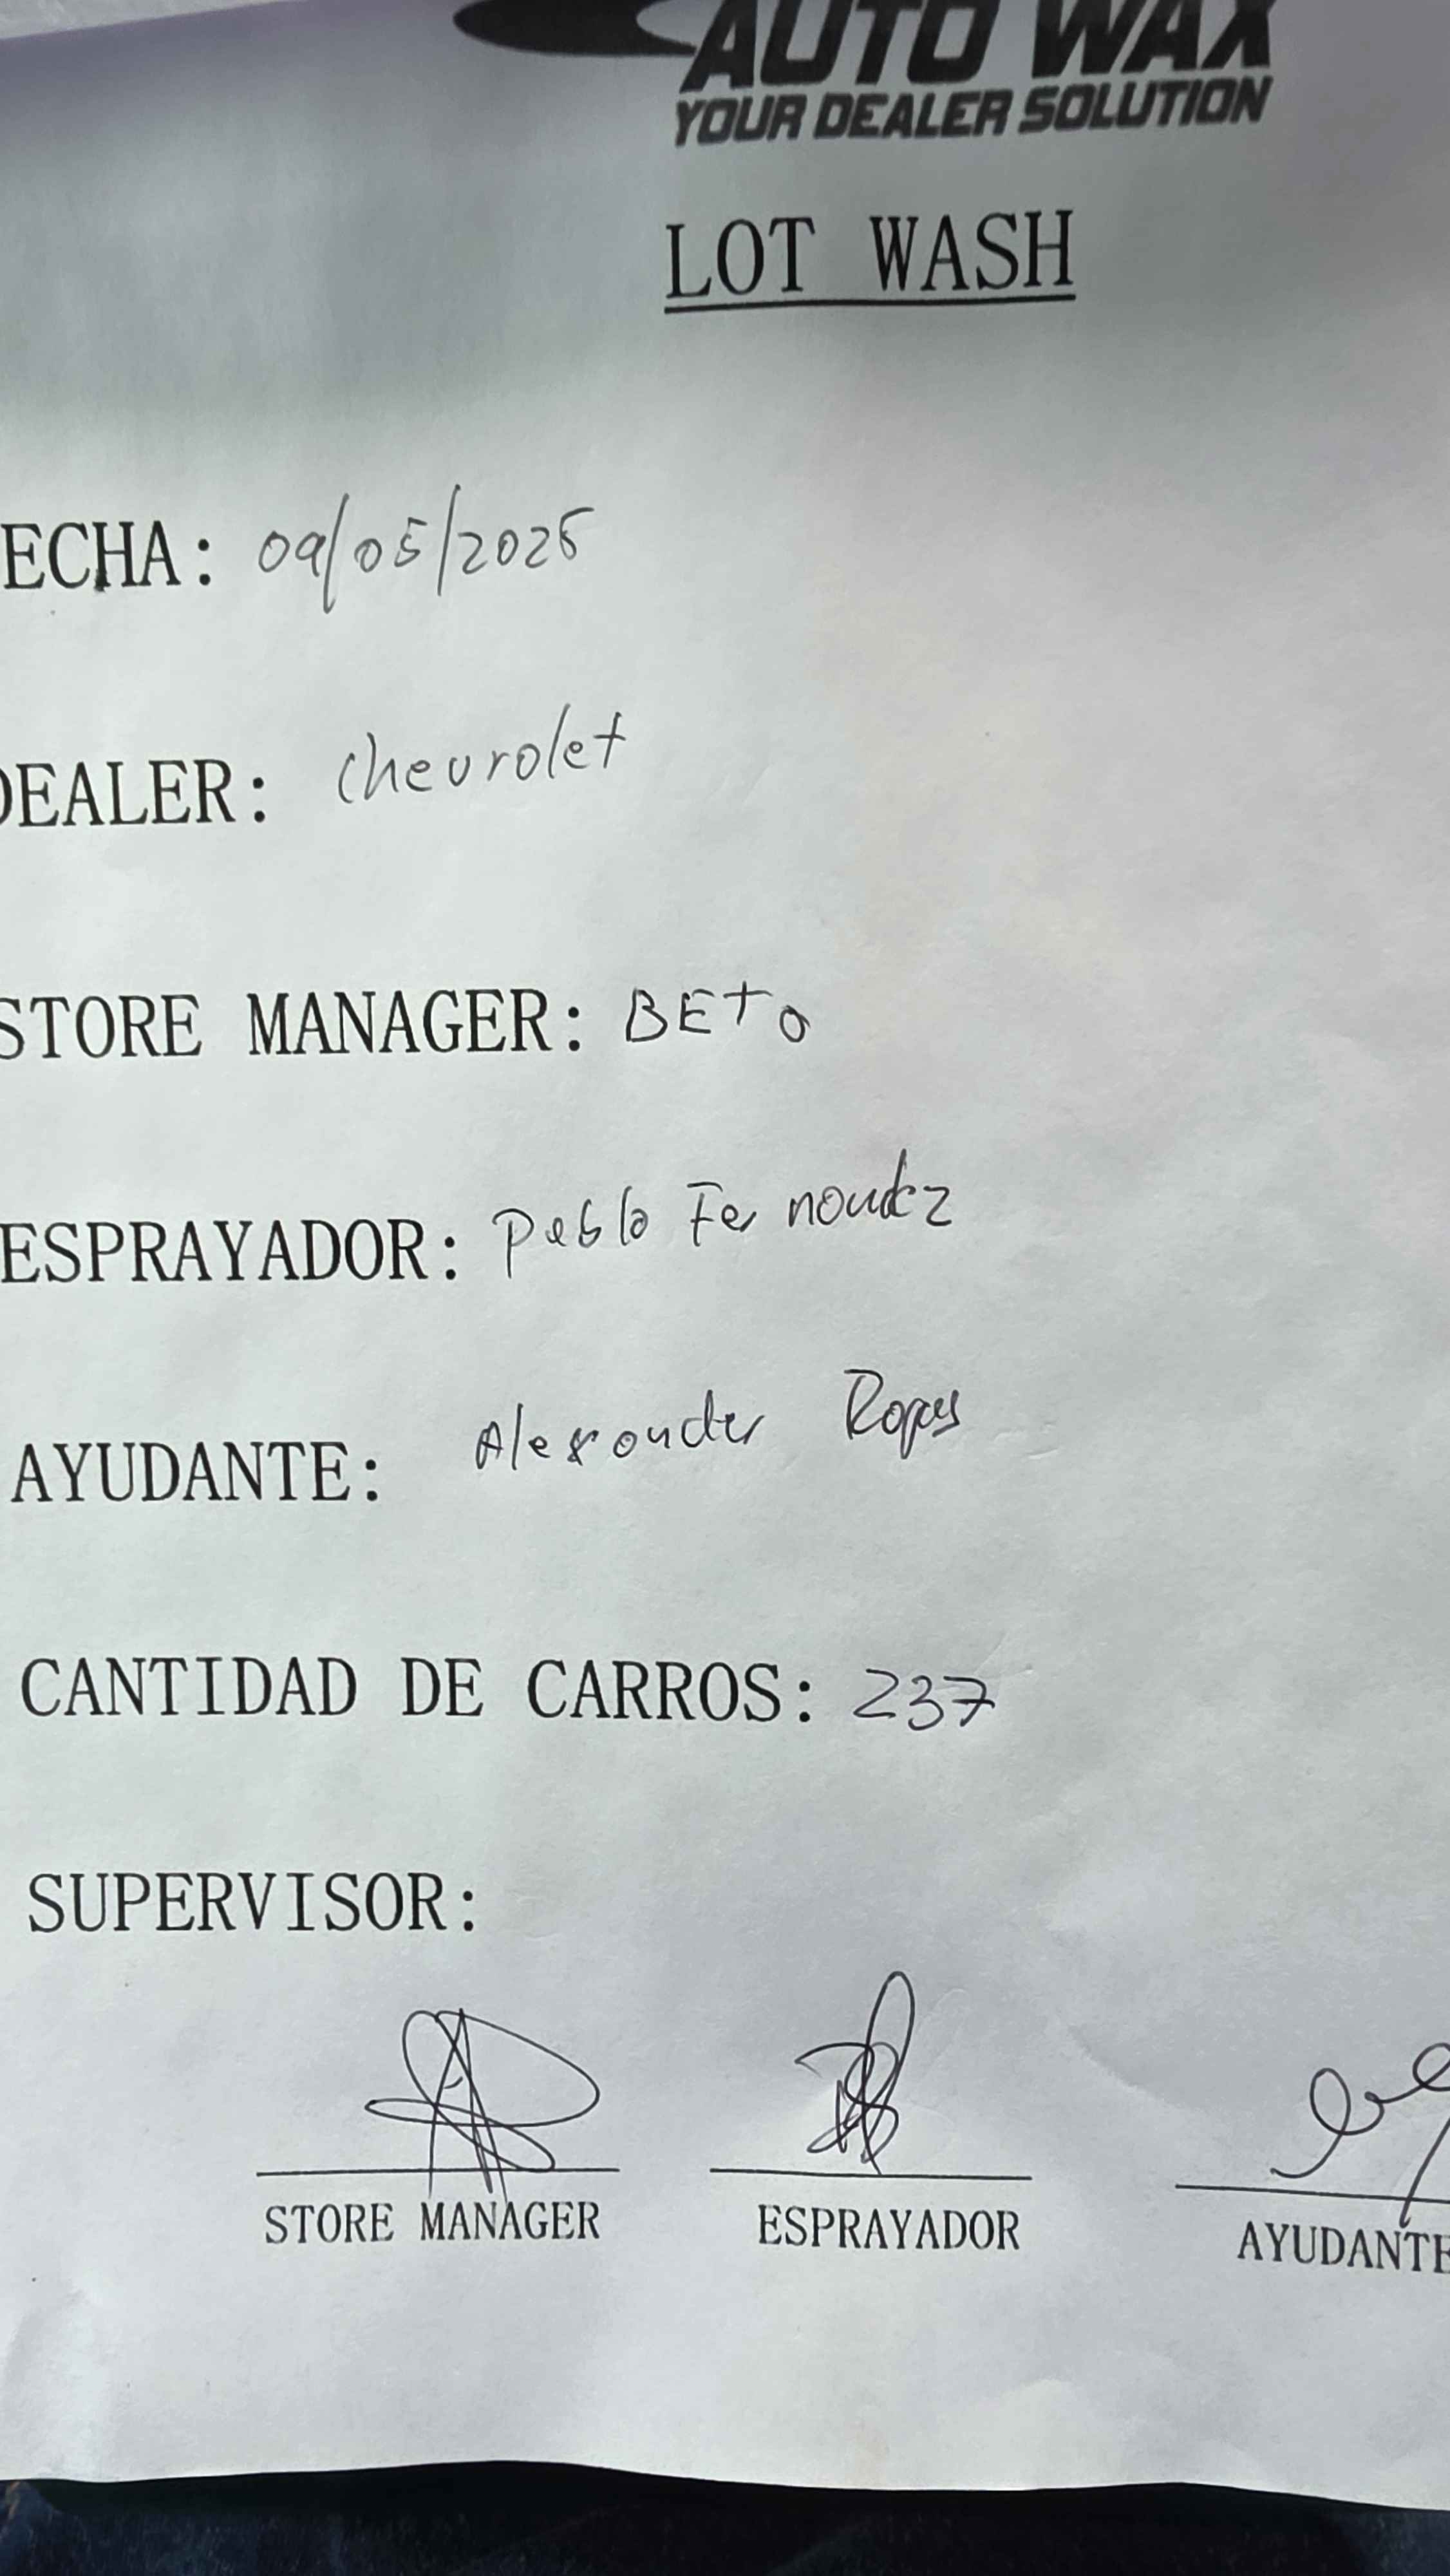 AUTO WAX
YOUR DEALER SOLUTION
LOT WASH
ECHA: 09/05/2025
DEALER: Chevrolet
STORE MANAGER: BETO
ESPRAYADOR: Pablo Fernandez
AYUDANTE: Alexander
CANTIDAD DE CARROS: 237
SUPERVISOR:
STORE MANAGER ESPRAYADOR AYUDANTE